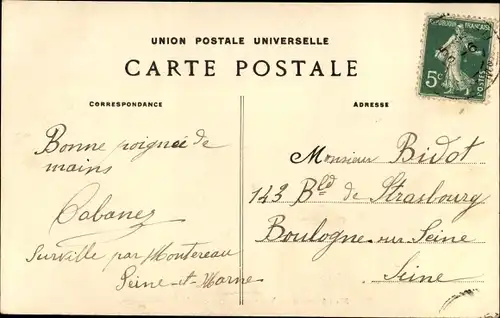 UNION POSTALE UNIVERSELLE
CARTE POSTALE
CORRESPONDANCE
ADRESSE
Bonne poignée de
mains
Cabanes
Surville par Montereau
Seine-et-Marne
Monsieur Bidot
143 Bld de Strasbourg
Boulogne-sur-Seine
Seine
5c
POSTES